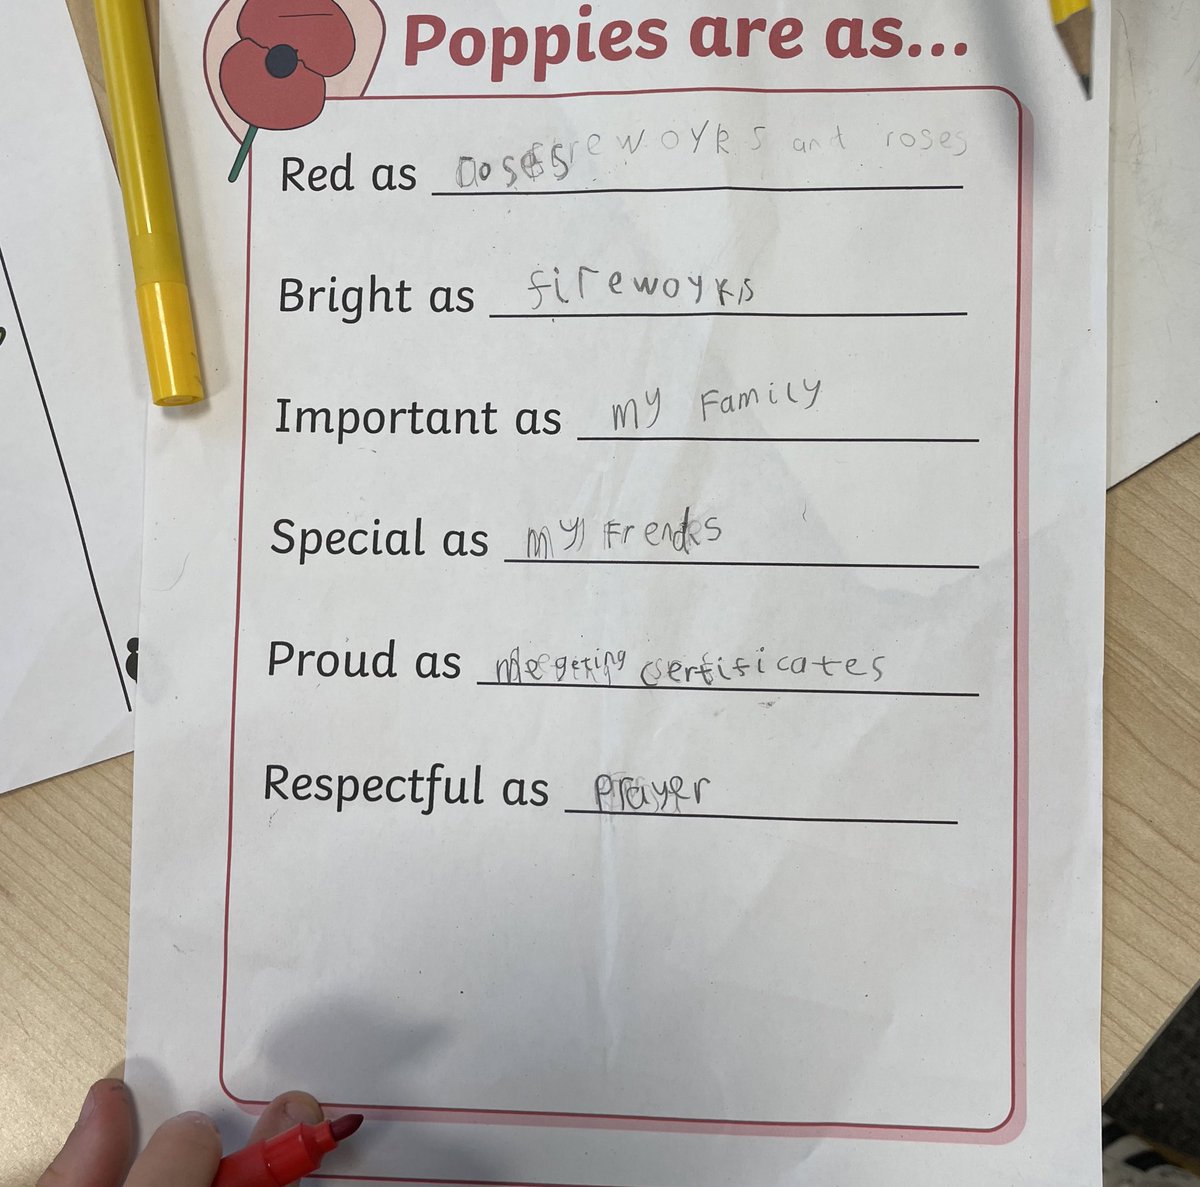 Poppies are as...
Red as fireworks and roses
Bright as fireworks
Important as my Family
Special as my Frends
Proud as geting certificates
Respectful as prayer